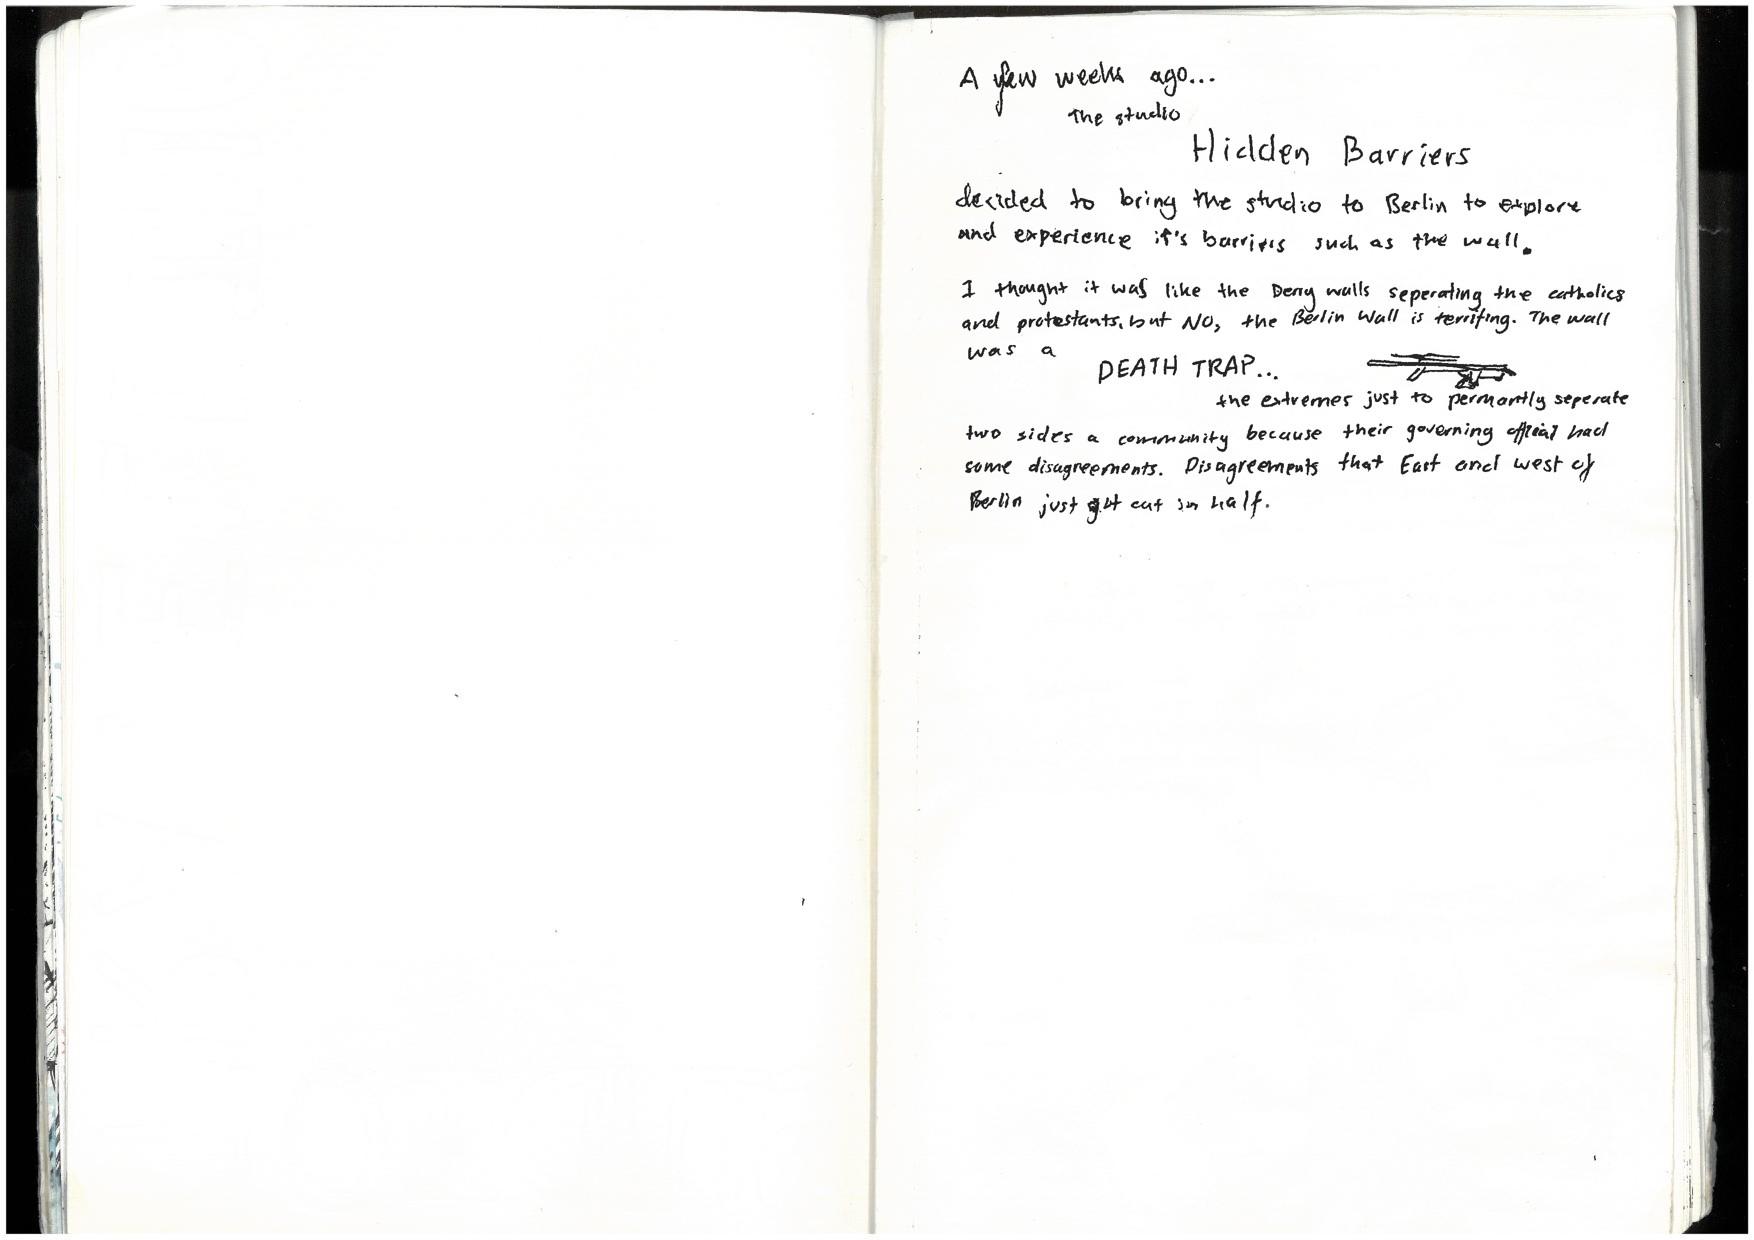 A few weeks ago...
The studio
Hidden Barriers
decided to bring the studio to Berlin to explore
and experience it's barriers such as the wall.
I thought it was like the Derry walls seperating the catholics
and protestants, but NO, the Berlin Wall is terrifing. The wall
was a
DEATH TRAP...
the extremes just to permantly seperate
two sides a community because their governing official had
some disagreements. Disagreements that East and west of
Berlin just got cut in half.